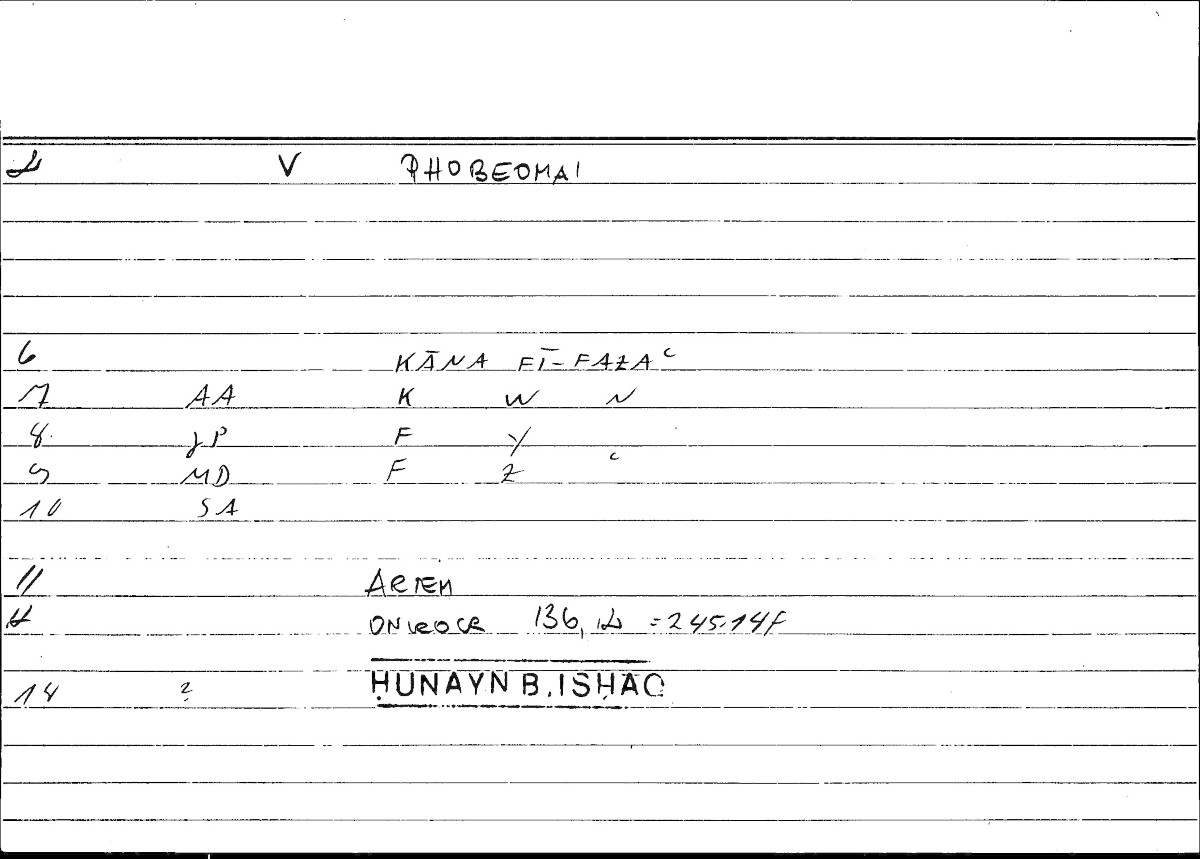 V PHOBEOMAI
6 KĀNA FĪ-FAZAʿ
7 AA K W N
8 JP F Y
9 MD F Z ʿ
10 SA
11 ARTEM
ONIROCR 136, =245.14F
14 ? ḤUNAYN B. ISḤĀQ